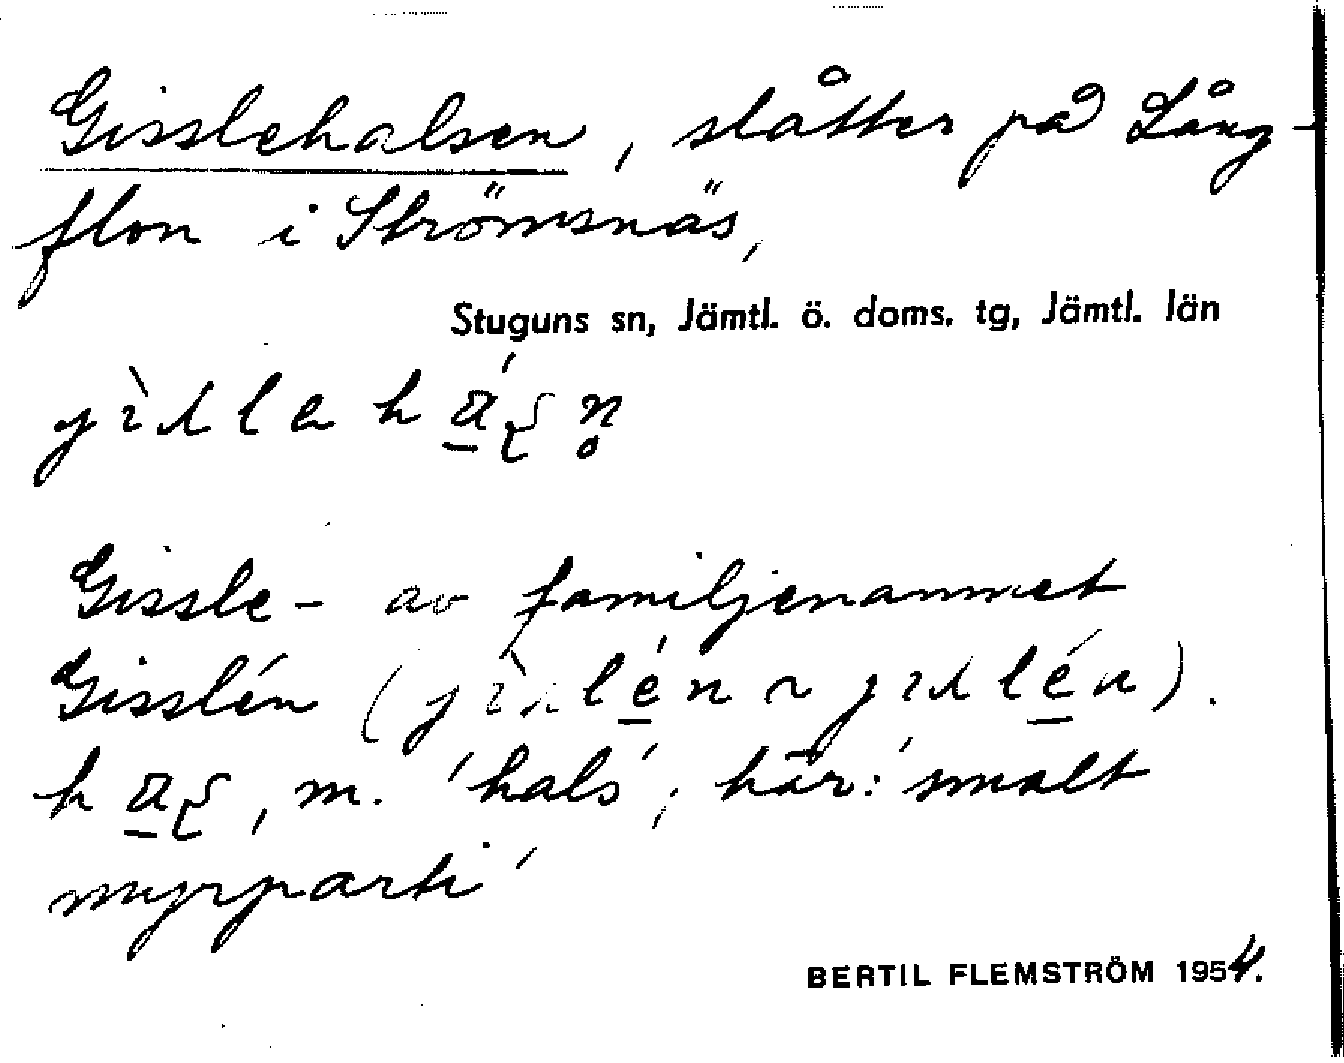 Gisslehalsen, slåtter på Lång-
flon i Strömsnäs,
Stuguns sn, Jämtl. ö. doms. tg, Jämtl. län
Gissle- av familjenamnet
Gisslén
m. 'hals', här: 'smalt
myrparti'
BERTIL FLEMSTRÖM 1954.